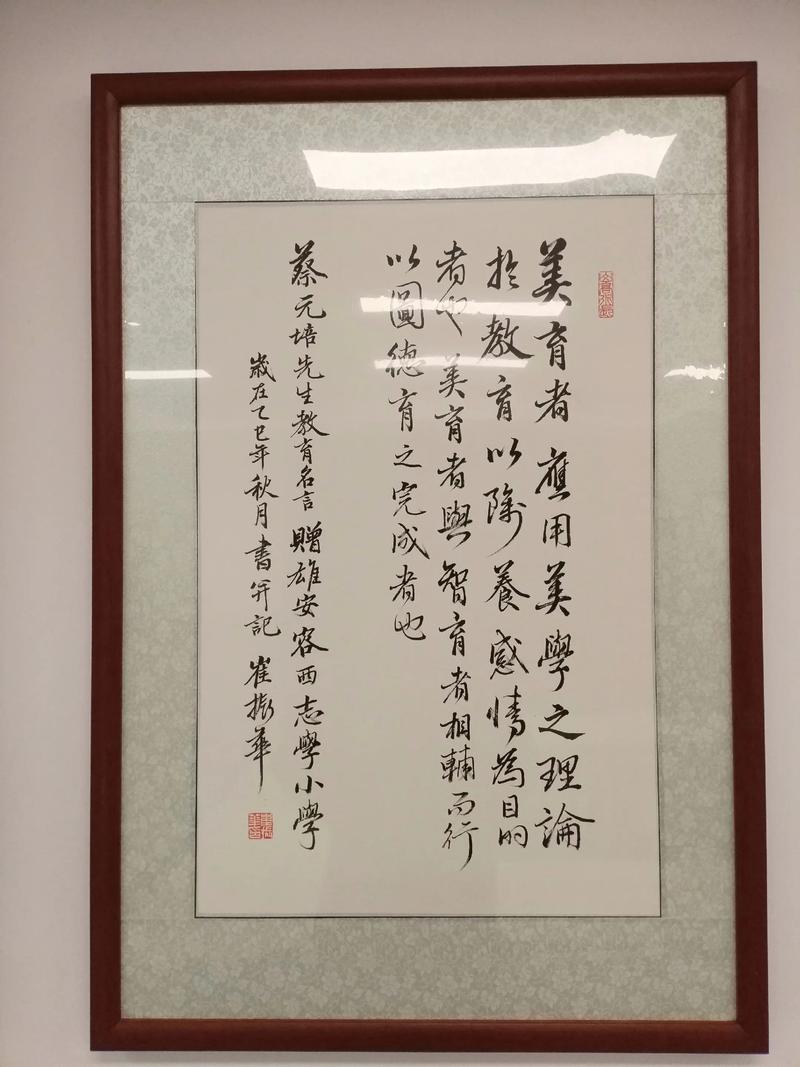 美育者應用美學之理論
於教育以陶養感情為目的
者也美育者與智育者相輔而行
以圖德育之完成者也
蔡元培先生教育名言贈雄安容西志學小學
歲在乙巳年秋月書并記崔振華